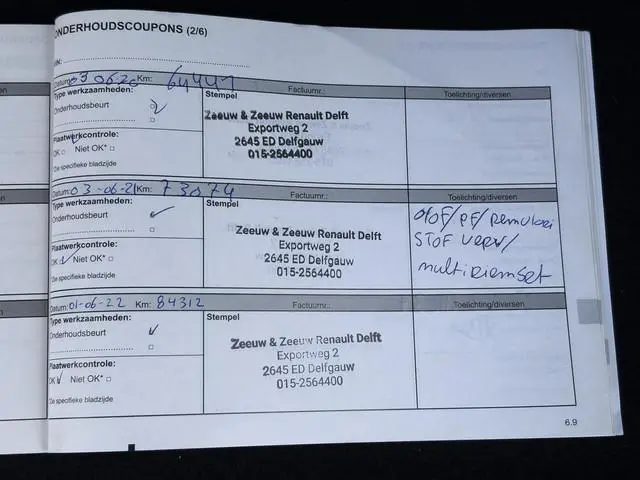 ONDERHOUDSCOUPONS (2/6)
Datum: 03 06 20 Km: 64441 Factuurnr.: Toelichting/diversen
Type werkzaamheden:
Onderhoudsbeurt
Plaatwerkcontrole:
OK Niet OK*
Zie specifieke bladzijde
Stempel
Zeeuw & Zeeuw Renault Delft
Exportweg 2
2645 ED Delfgauw
015-2564400
Datum: 03-06-21 Km: 73074 Factuurnr.: Toelichting/diversen
Type werkzaamheden:
Onderhoudsbeurt
Plaatwerkcontrole:
OK Niet OK*
Zie specifieke bladzijde
Stempel
Zeeuw & Zeeuw Renault Delft
Exportweg 2
2645 ED Delfgauw
015-2564400
STOF VERV/
multiriemset
Datum: 01-06-22 Km: 84312 Factuurnr.: Toelichting/diversen
Type werkzaamheden:
Onderhoudsbeurt
Plaatwerkcontrole:
OK Niet OK*
Zie specifieke bladzijde
Stempel
Zeeuw & Zeeuw Renault Delft
Exportweg 2
2645 ED Delfgauw
015-2564400
6.9